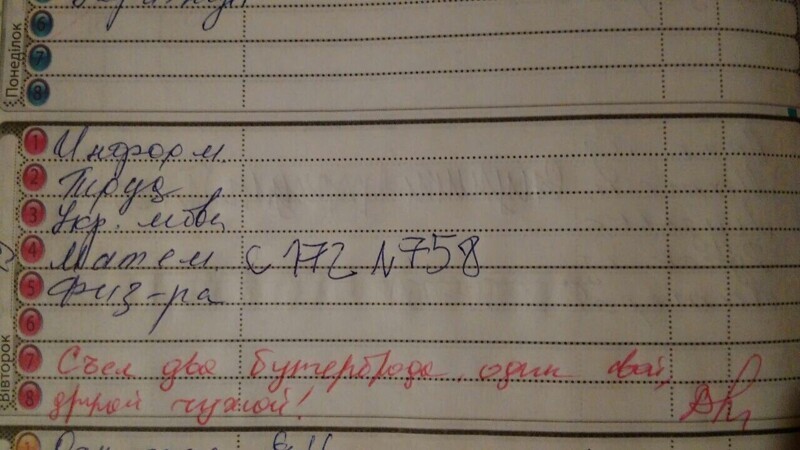 Понеділок
6
7
8
Вівторок
1 Информ.
2 Труд
3 Укр. мова
4 Матем. с 172 N 758
5 Физ-ра
6
7 Съел два бутерброда, один свой,
8 другой чужой!